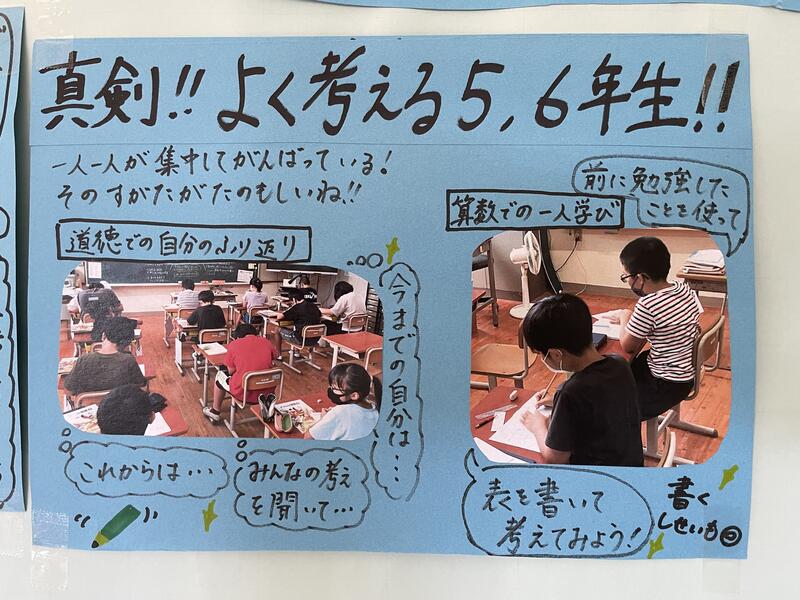 真剣!! よく考える5,6年生!!
一人一人が集中してがんばっている!
そのすがたがたのもしいね!!
道徳での自分のふり返り
今までの自分は・・・
これからは・・・
みんなの考え
を聞いて・・・
前に勉強した
ことを使って
算数での一人学び
表を書いて
考えてみよう!
書く
しせいも